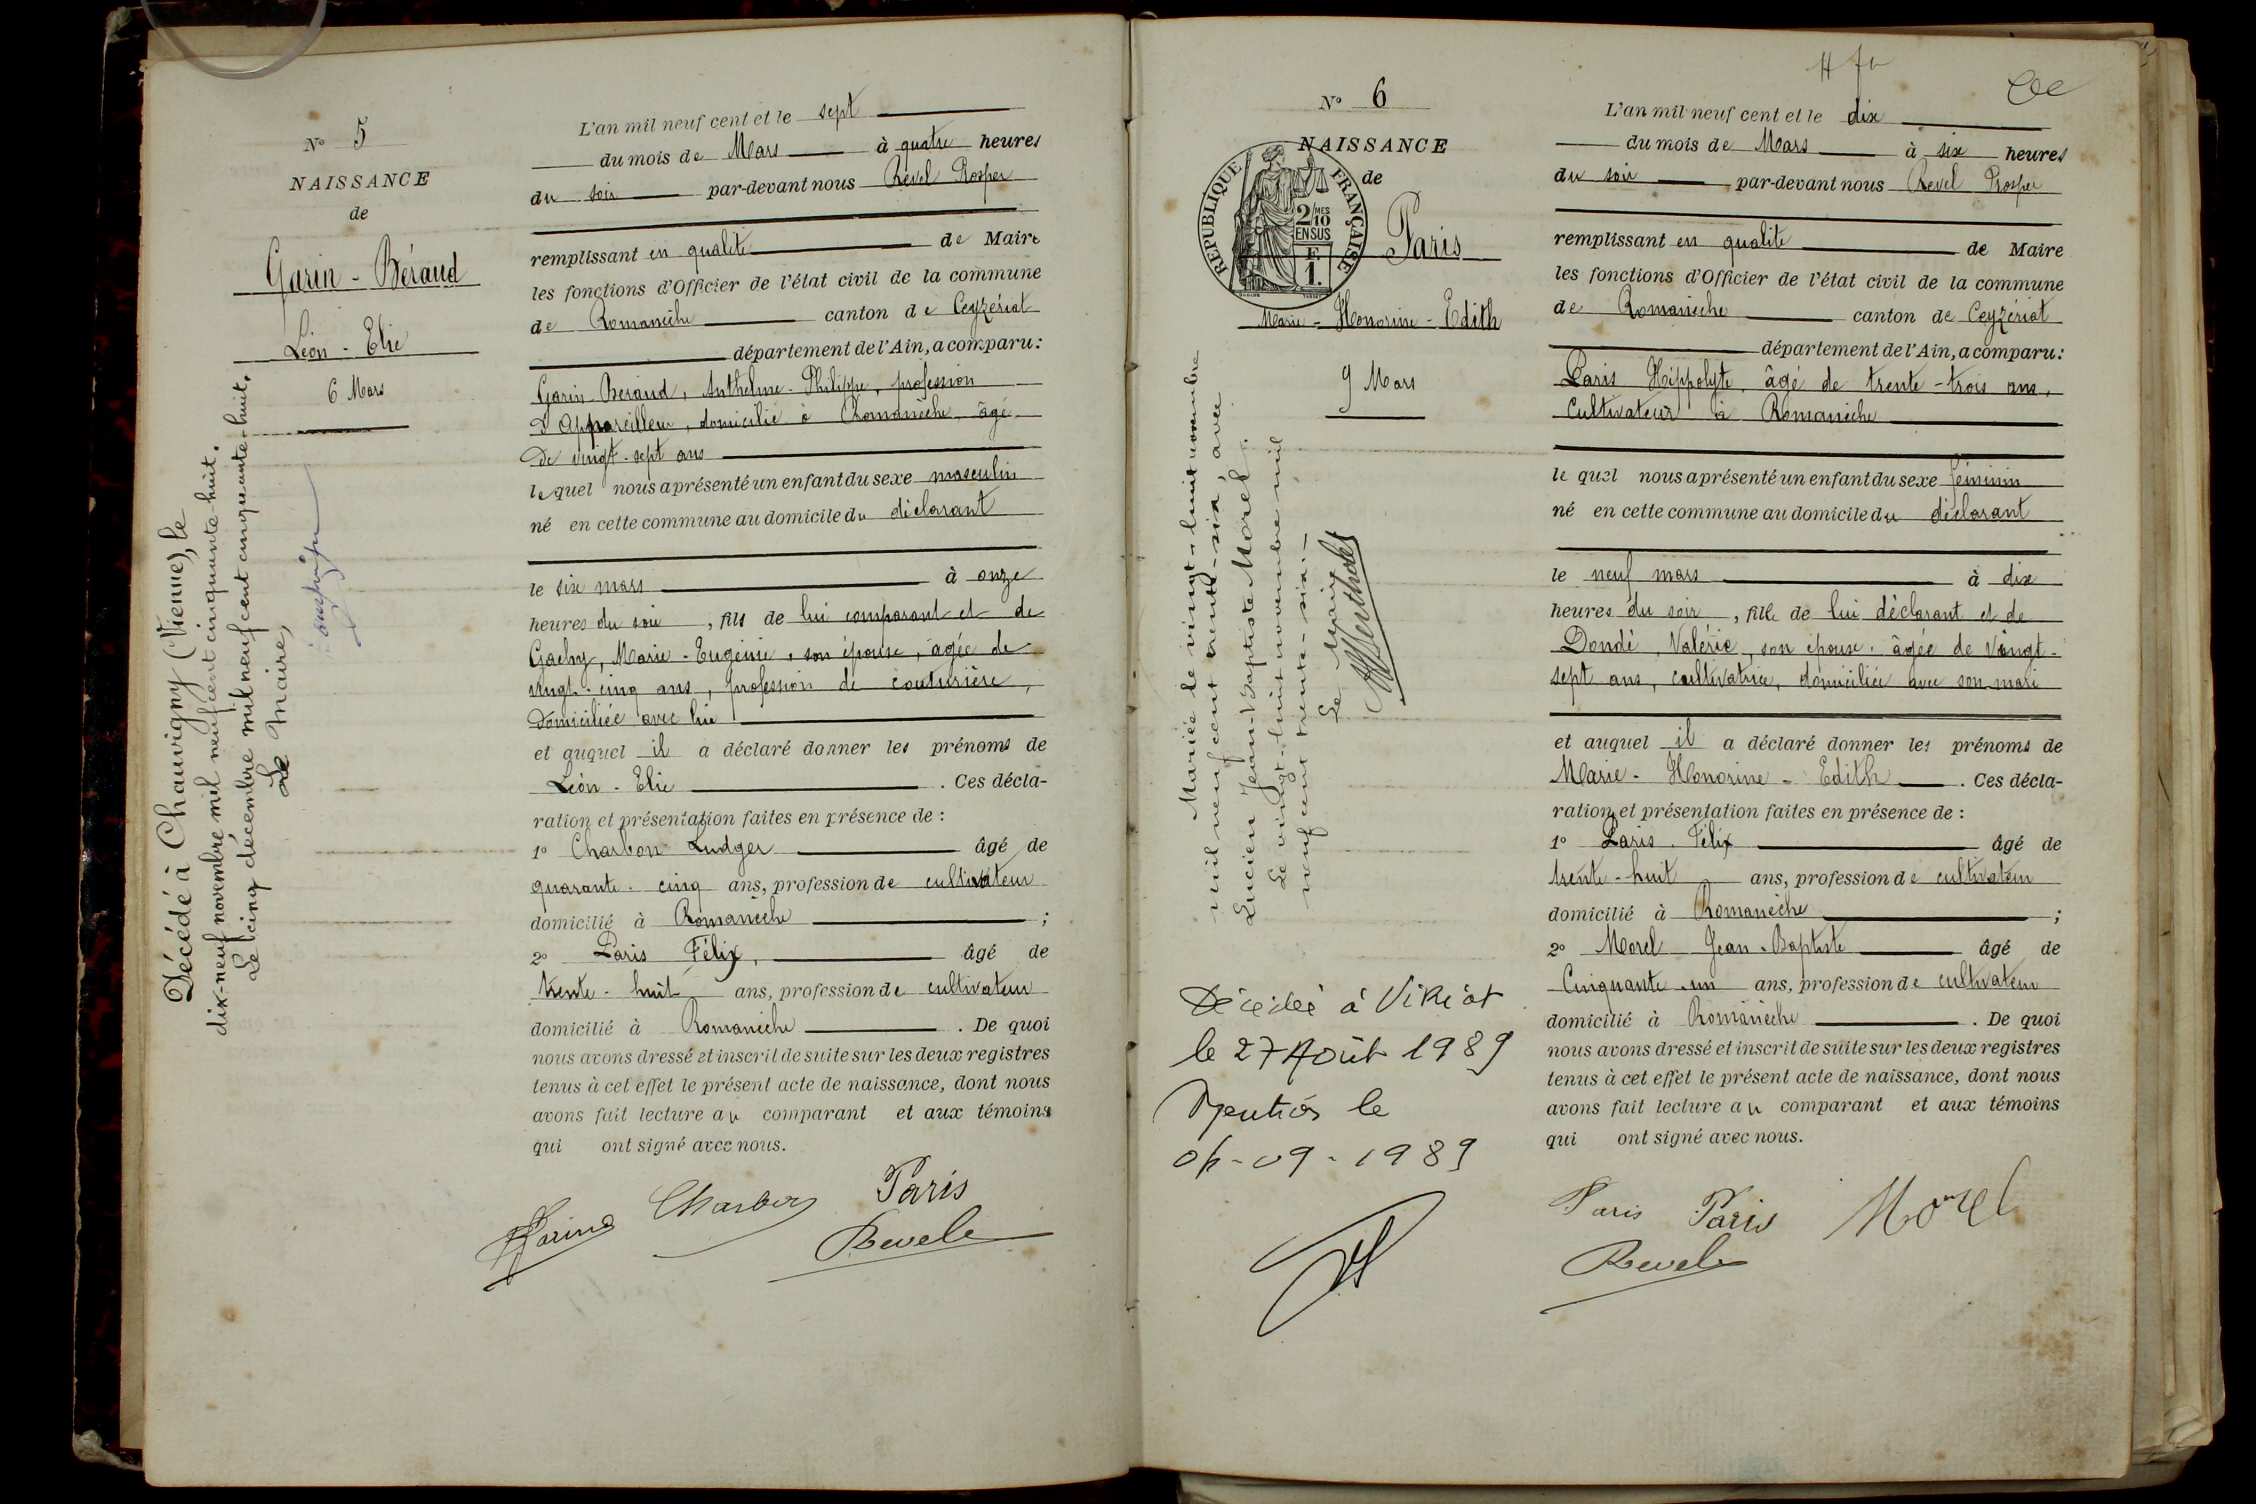 N° 5
NAISSANCE
de
Garin - Béraud
Léon - Elie
6 Mars
Décédé à Chauvigny (Vienne), le
dix-neuf novembre mil neuf cent cinquante-huit.
Le cinq décembre mil neuf cent cinquante-huit.
Le Maire,
L'an mil neuf cent et le sept
du mois de Mars à quatre heures
du soir par-devant nous Revel Prosper
remplissant en qualité de Maire
les fonctions d'Officier de l'état civil de la commune
de Romanèche canton de Ceyzériat
département de l'Ain, a comparu:
Garin-Beraud, Anthelme-Philippe, profession
d'Appareilleur, domicilié à Romanèche, âgé
de vingt-sept ans
lequel nous a présenté un enfant du sexe masculin
né en cette commune au domicile du déclarant
le six mars à onze
heures du soir, fils de lui comparant et de
Gachy, Marie-Eugénie, son épouse, âgée de
vingt-cinq ans, profession de couturière,
domiciliée avec lui
et auquel il a déclaré donner les prénoms de
Léon-Elie. Ces décla-
ration et présentation faites en présence de :
1° Charbon Ludger âgé de
quarante-cinq ans, profession de cultivateur
domicilié à Romanèche ;
2° Paris Félix, âgé de
trente-huit ans, profession de cultivateur
domicilié à Romanèche. De quoi
nous avons dressé et inscrit de suite sur les deux registres
tenus à cet effet le présent acte de naissance, dont nous
avons fait lecture au comparant et aux témoins
qui ont signé avec nous.
Garin Charbon Paris
Revel
N° 6
NAISSANCE
de
RÉPUBLIQUE FRANÇAISE
2/10 MES
EN SUS
F.
1.
Paris
Marie - Honorine - Edith
9 Mars
Mariée le vingt-huit novembre
mil neuf cent trente-six, avec
Lucien Jean-Baptiste Morel.
Le vingt-huit novembre mil
neuf cent trente-six.-
Le Maire
Décédée à Viriat
le 27 Août 1989
Mention le
-09-1989
L'an mil neuf cent et le dix
du mois de Mars à six heures
du soir par-devant nous Revel Prosper
remplissant en qualité de Maire
les fonctions d'Officier de l'état civil de la commune
de Romanèche canton de Ceyzériat
département de l'Ain, a comparu:
Paris Hippolyte, âgé de trente-trois ans,
Cultivateur à Romanèche
le quel nous a présenté un enfant du sexe féminin
né en cette commune au domicile du déclarant
le neuf mars à dix
heures du soir, fille de lui déclarant et de
Dondé, Valérie, son épouse, âgée de Vingt-
sept ans, cultivatrice, domiciliée avec son mari
et auquel il a déclaré donner les prénoms de
Marie-Honorine-Edith. Ces décla-
ration et présentation faites en présence de :
1° Paris Félix âgé de
trente-huit ans, profession de cultivateur
domicilié à Romanèche ;
2° Morel Jean-Baptiste âgé de
Cinquante-un ans, profession de cultivateur
domicilié à Romanèche. De quoi
nous avons dressé et inscrit de suite sur les deux registres
tenus à cet effet le présent acte de naissance, dont nous
avons fait lecture au comparant et aux témoins
qui ont signé avec nous.
Paris Paris Morel
Revel